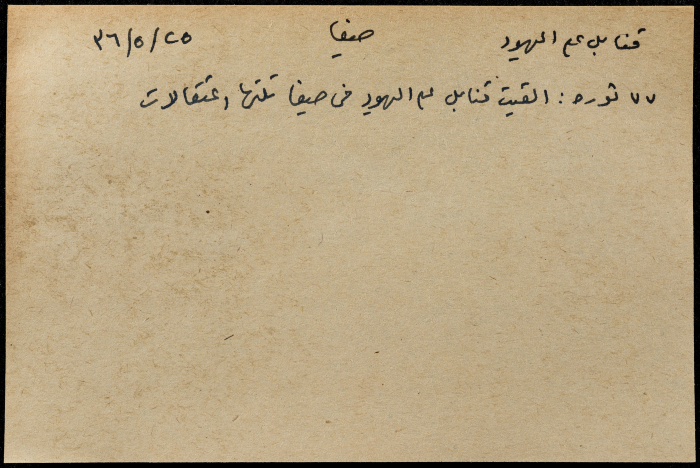 قنابل عم اليهود حيفا ٢٥/٥/٣٦
٧٧ ثوره : القيت قنابل عم اليهود في حيفا تلتها اعتقالات